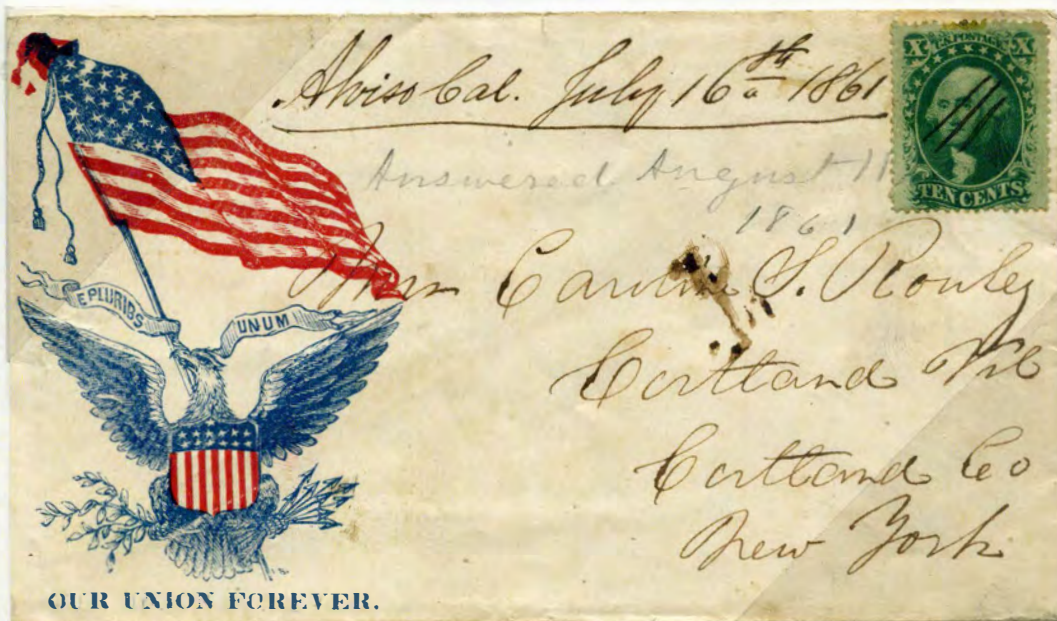 Alviso Cal. July 16th 1861
U.S. POSTAGE
X X
TEN CENTS.
Answered August 11
1861
E PLURIBS
UNUM
S. Rowley
Cortland Vil
Cortland Co
New York
OUR UNION FOREVER.